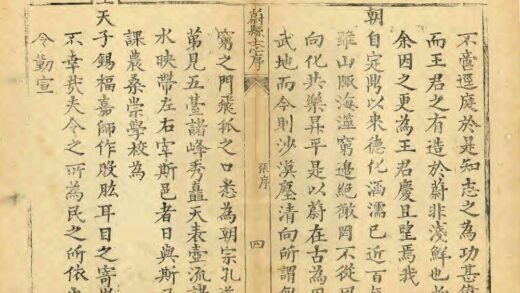 不啻逕庭於是知志之為功甚偉
而王君之有造於蔚非淺鮮也
余因之更為王君慶且望焉我
朝自定鼎以來德化涵濡已近百
雖山陬海澨窮邉絕徼罔不從
向化共樂昇平是以蔚在古為用
武地而今則沙漠清向所謂
蔚縣志序
張序
四
窮之門飛狐之口悉為朝宗孔道
第見五臺諸峰秀矗天表壺流諸
水映帶左右宰斯邑者日與斯
課農桑崇學校為
天子錫福嘉師作股肱耳目之寄
不幸哉夫令之所為民之所依
令勤宣